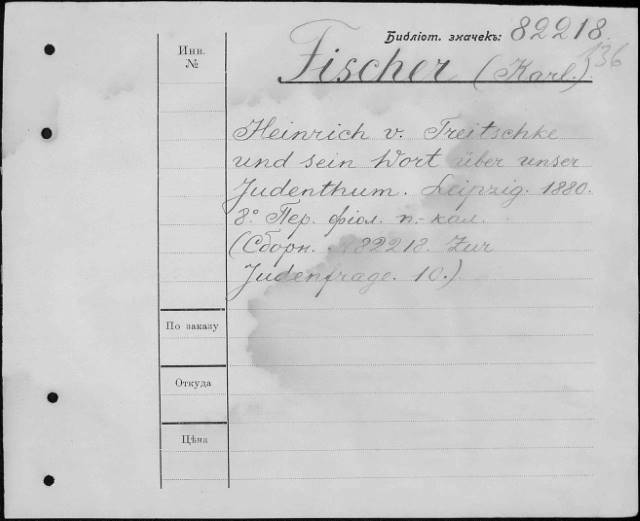 Библіот. значекъ: 82218.
136
Инв.
№
Fischer (Karl.)
Heinrich v. Treitschke
und sein Wort über unser
Judenthum. Leipzig. 1880.
8° Пер. фіол. п.-кал.
(Сборн. 82218. Zur
Judenfrage. 10.)
По заказу
Откуда
Цѣна